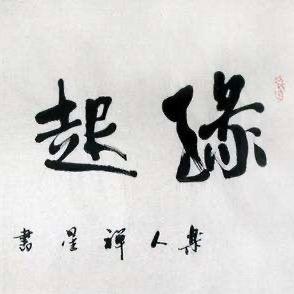 緣起
樂人禪星書